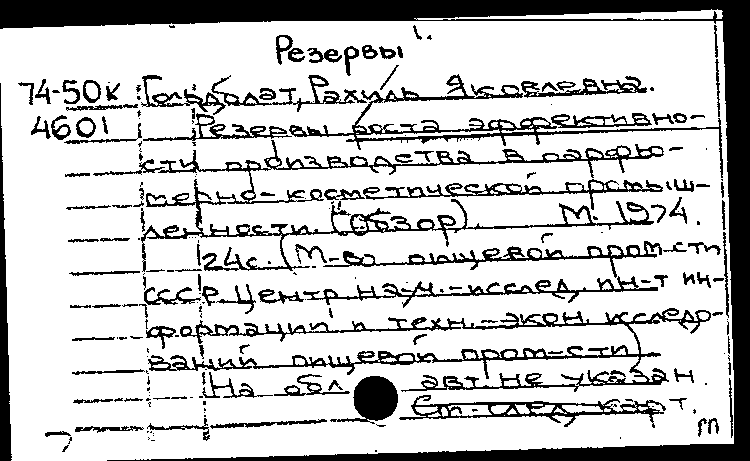 Резервы 1.
74-50к Гольдблат, Рахиль Яковлевна.
4601 Резервы роста эффективно-
сти производства в парфю-
мерно-косметической промыш-
ленности. (Обзор). М. 1974.
24с. (М-во пищевой пром-сти
СССР. Центр. науч.-исслед. ин-т ин-
формации и техн.-экон. исследо-
ваний пищевой пром-сти)
На обл. авт. не указан.
См. след. карт.
m